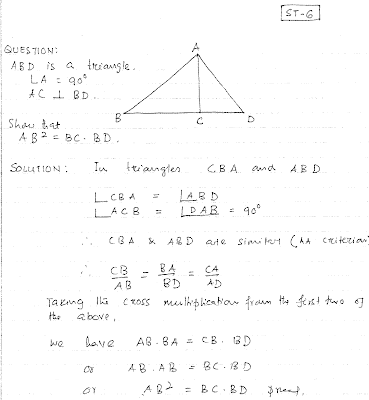 ST-6
QUESTION:
ABD is a triangle.
∟A = 90°
AC ⊥ BD.
Show that
AB² = BC· BD.
A
B
C
D
SOLUTION: In triangles CBA and ABD
∟CBA = ∟ABD
∟ACB = ∟DAB = 90°
∴ CBA & ABD are similar (AA criterion)
∴ CB/AB = BA/BD = CA/AD
Taking the cross multiplication from the first two of
the above,
we have AB·BA = CB. BD
or AB·AB = BC·BD
or AB² = BC·BD proved.